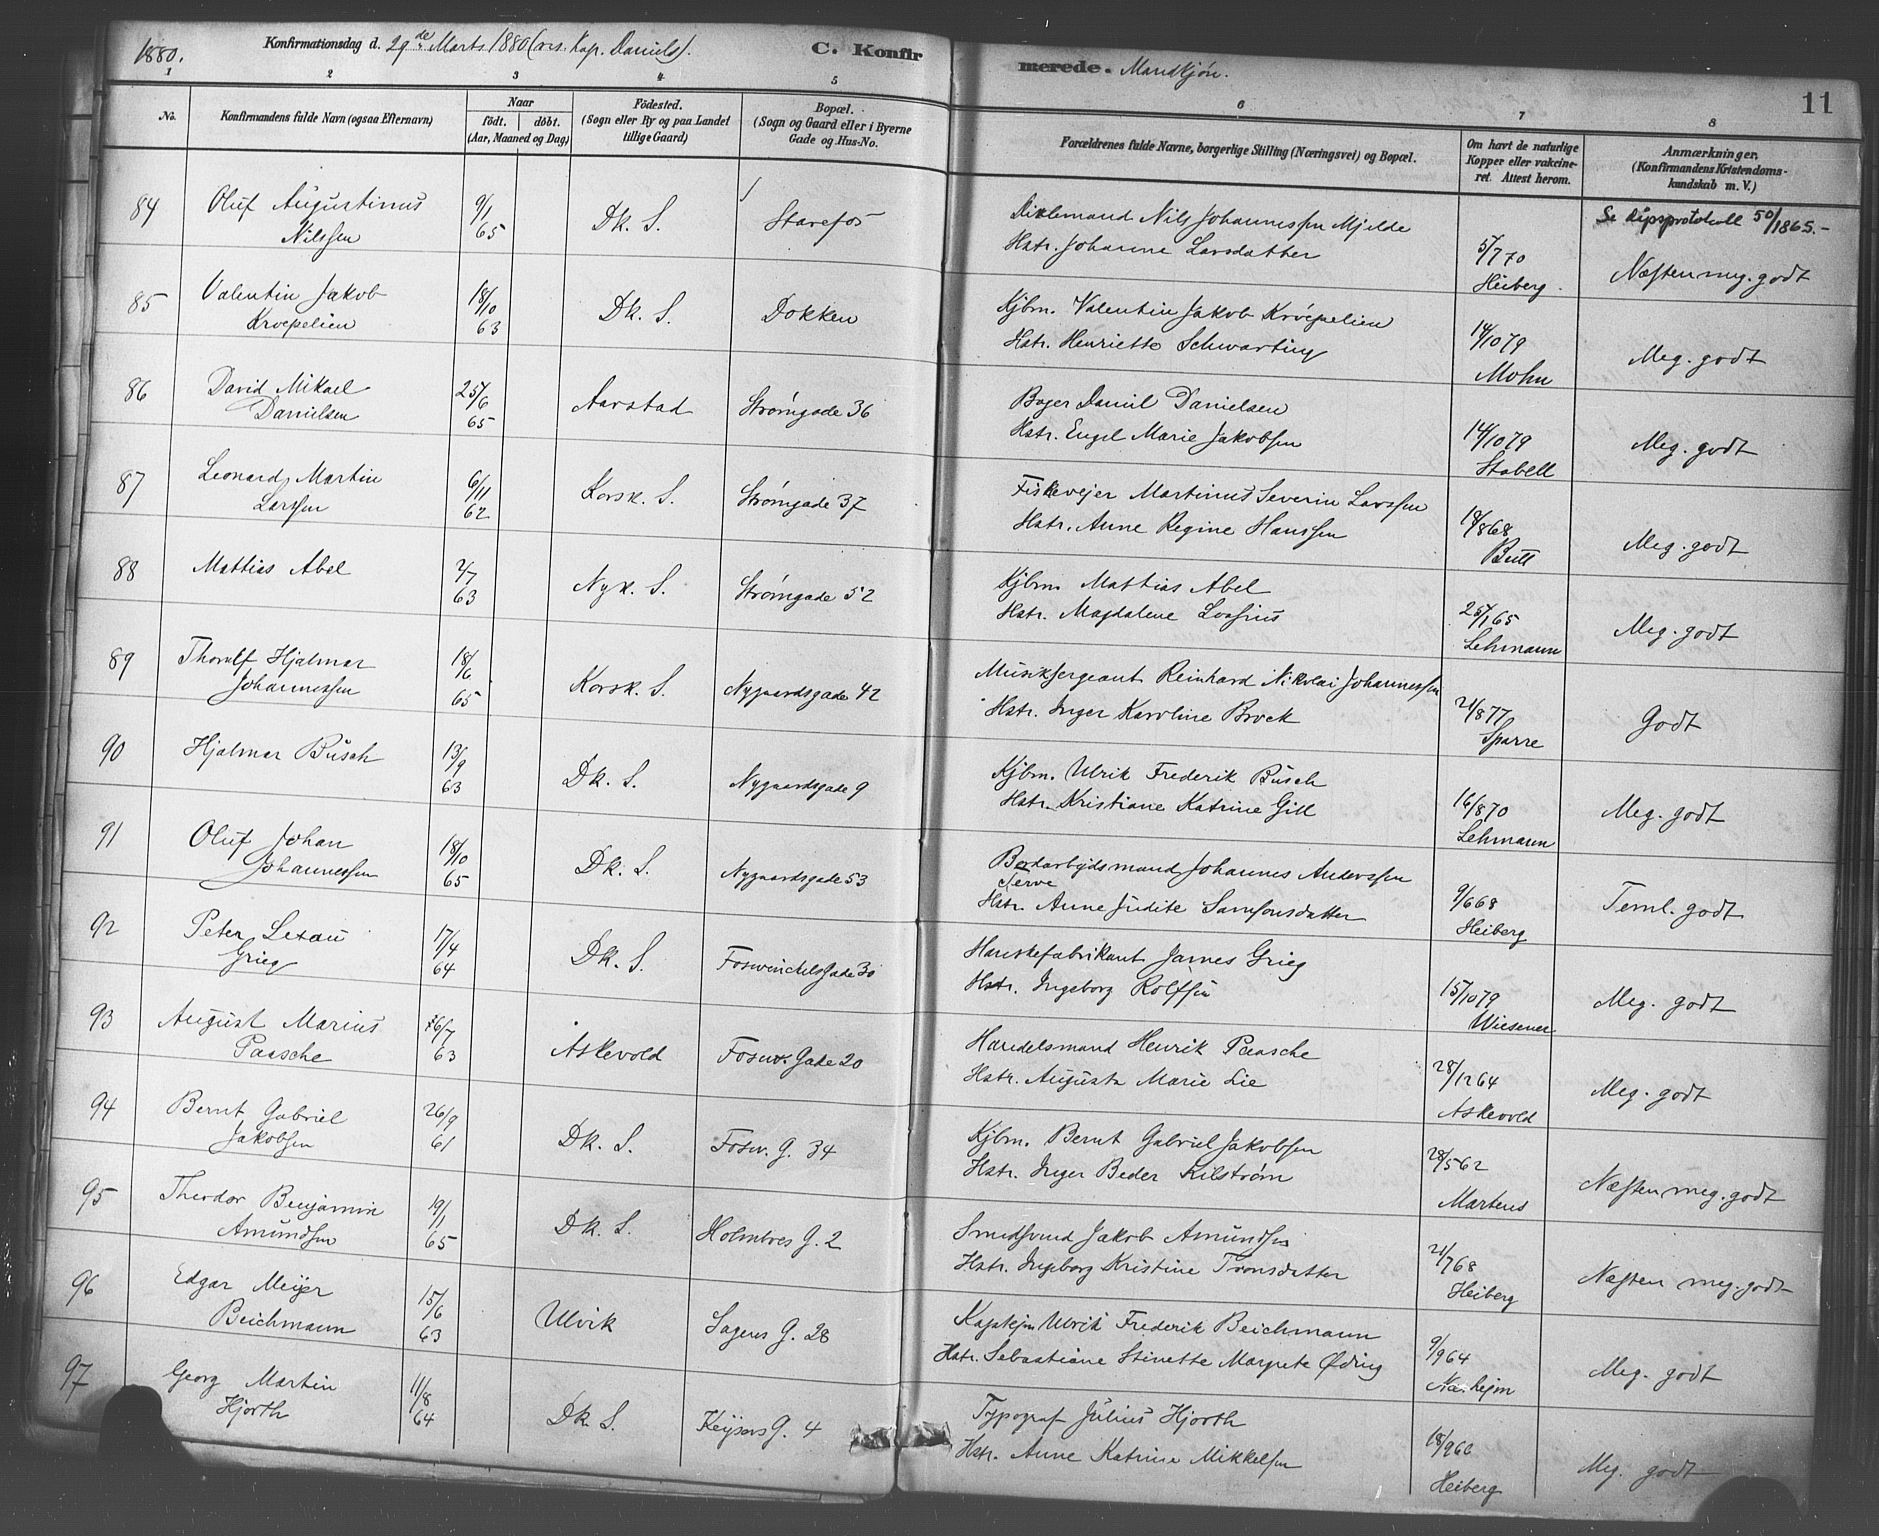 1880. Konfirmationsdag d. 29de Marts 1880 (res. Kap. Daniels). C. Konfirmerede. Mandkjøn. 11
1 2 3 4 5 6 7 8
No. Konfirmandens fulde Navn (ogsaa Efternavn) Naar födt. döbt. (Aar, Maaned og Dag) Födested. (Sogn eller By og paa Landet tillige Gaard) Bopæl. (Sogn og Gaard eller i Byerne Gade og Hus-No. Forældrenes fulde Navne, borgerlige Stilling (Næringsvei) og Bopæl. Om havt de naturlige Kopper eller vakcineret. Attest herom. Anmærkninger. (Konfirmandens Kristendomskundskab m. V.)
84 Oluf Augustinus Nilssen 9/1 65 Dk. S. Starefos Nils Johannessen Mjelde
Hstr. Johanne Larsdatter 5/7 70 Heiberg. Se dåpsprotokoll 50/1865.- Næsten meg. godt
85 Valentin Jakob Kroepelien 18/10 63 Dk. S. Dokken Kjbm. Valentin Jakob Kroepelien
Hstr. Henriette Schwarting 14/10 79 Mohn Meg. godt
86 David Mikael Danielsen 25/6 65 Aarstad Strømgade 36 Bager Daniel Danielsen
Hstr. Engel Marie Jakobsen 14/10 79 Stabell Meg. godt
87 Leonard Martin Larssen 6/11 62 Korsk. S. Strømgade 37 Fiskevejer Martinus Severin Larssen
Hstr. Anne Regine Hanssen 18/8 68 Bull Meg. godt
88 Mattias Abel 2/7 63 Nyk. S. Strømgade 52 Kjbm. Mattias Abel
Hstr. Magdalene Lossius 25/1 65 Lehmann Meg. godt
89 Thorulf Hjalmar Johannessen 18/6 65 Korsk. S. Nygaardsgade 42 Musiksergeant Reinhard Nikolai Johannessen
Hstr. Inger Karoline Brock 21/8 77 Sparre Godt
90 Hjalmar Busch 13/9 63 Dk. S. Nygaardsgade 9 Kjbm. Ulrik Frederik Busch
Hstr. Kristiane Katrine Gill 16/8 70 Lehmann Meg. godt
91 Oluf Johan Johannessen 18/10 65 Dk. S. Nygaardsgade 53 Johannes Anderssen Terve
Hstr. Anne Judite Samsonsdatter 9/6 68 Heiberg Teml. godt
92 Peter Lexau Grieg 17/4 64 Dk. S. Foswinckelsgade 30 Hanskefabrikant James Grieg
Hstr. Ingeborg Rolfsen 15/10 79 Wiesener Meg. godt
93 August Marius Paasche 26/7 63 Askevold Fosw. Gade 20 Handelsmand Henrik Paasche
Hstr. Augusta Marie Lie 28/12 64 Askevold Meg. godt
94 Bernt Gabriel Jakobsen 26/9 61 Dk. S. Fosw. G. 34 Kjbm. Bernt Gabriel Jakobsen
Hstr. Inger Beder Kilstrøm 28/5 62 Martens Næsten meg. godt
95 Theodor Benjamin Amundsen 19/1 65 Dk. S. Holmboes G. 2 Smedsvend Jakob Amundsen
Hstr. Ingeborg Kristine Tronsdatter 21/7 68 Heiberg Næsten meg. godt
96 Edgar Meyer Beichmann 15/6 63 Ulvik Sagens G. 28 Ulrik Frederik Beichmann
Hstr. Sebastiane Stinette Margrete Øding 9/9 64 Meg. godt
97 Georg Martin Hjorth 11/8 64 Dk. S. Keysers G. 4 Typograf Julius Hjorth
Hstr. Anne Katrine Mikkelsen 18/9 66 Heiberg Meg. godt